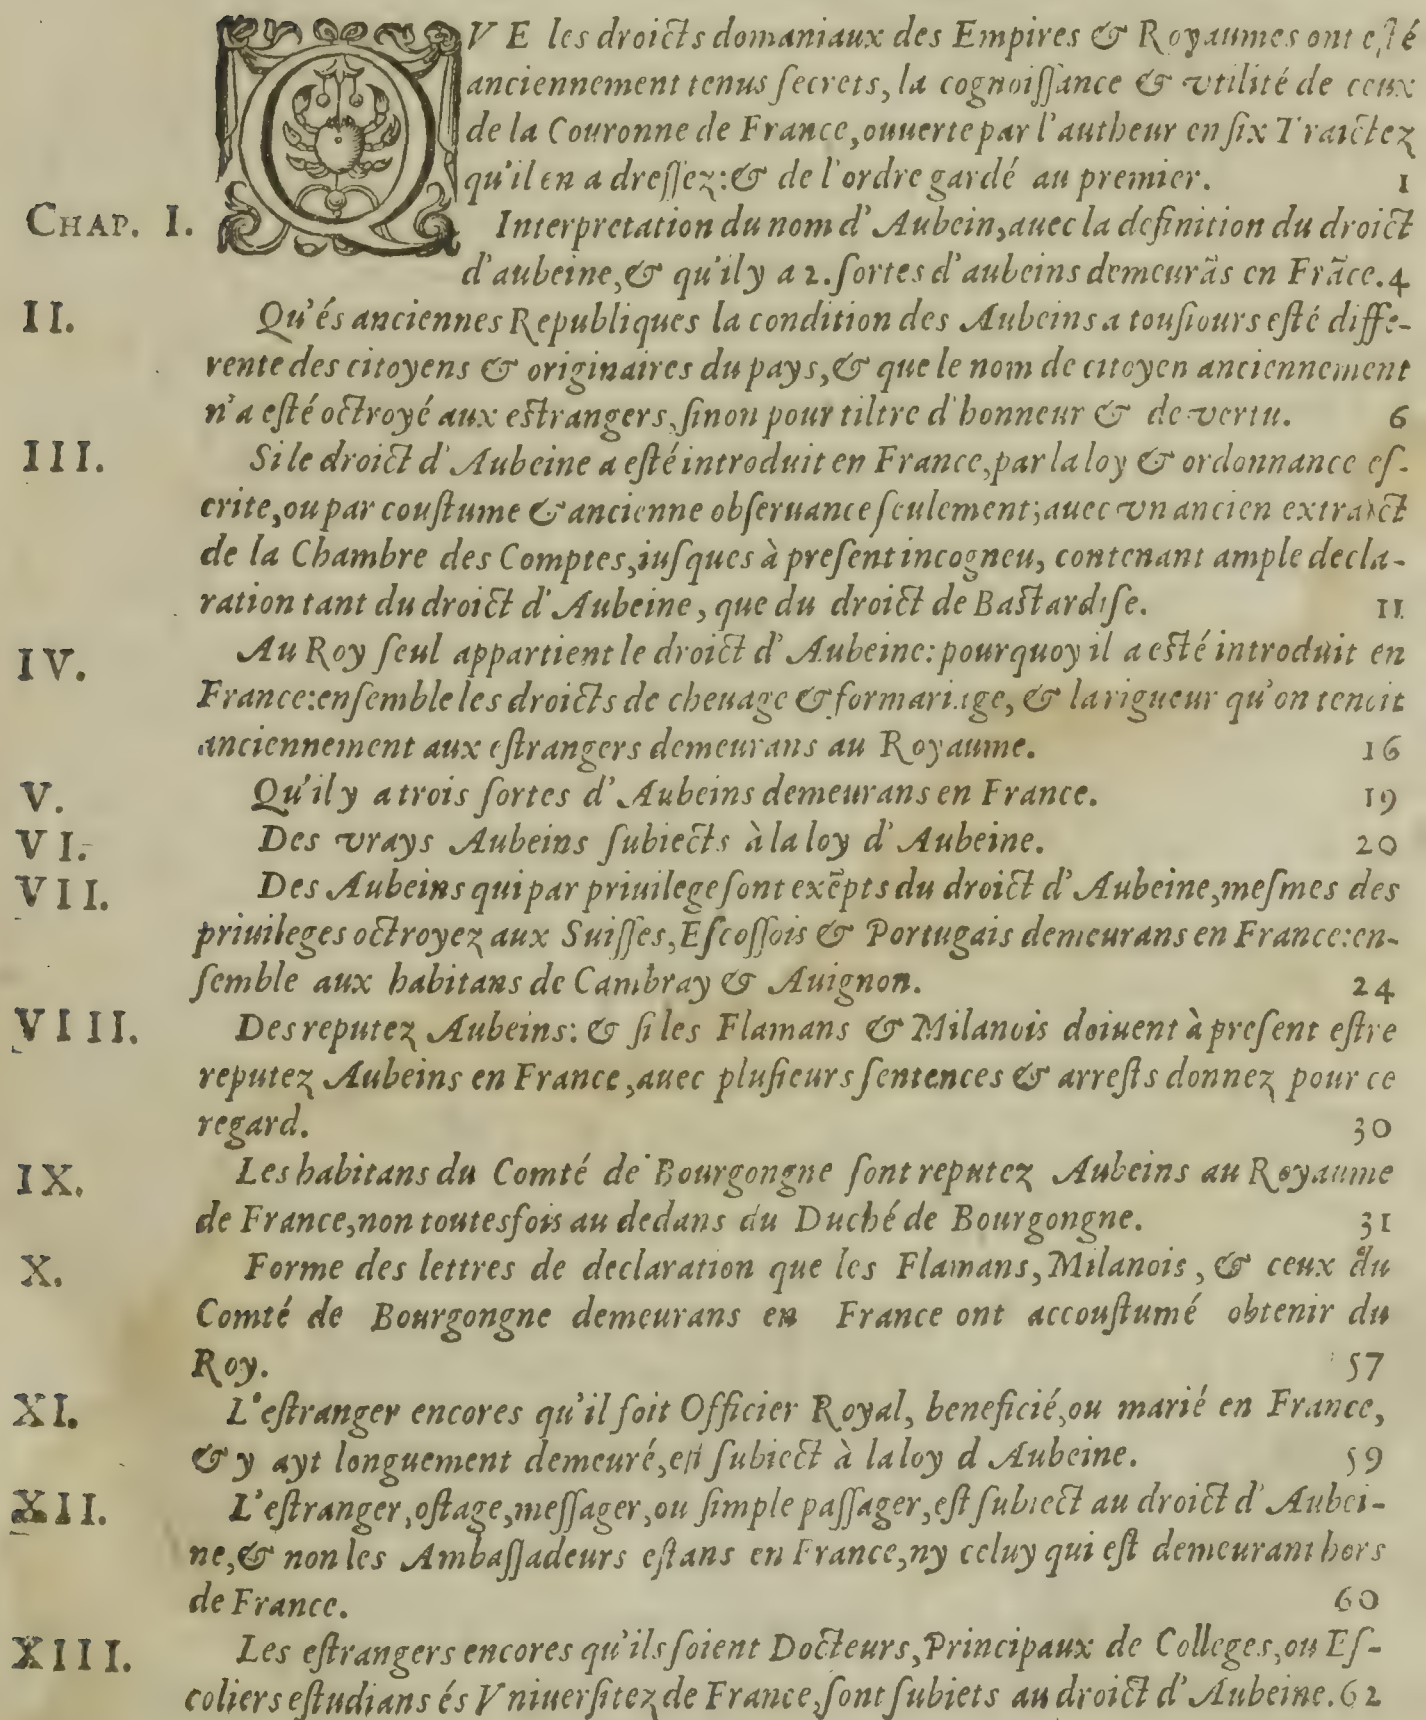 QVE les droicts domaniaux des Empires & Royaumes ont esté
anciennement tenus ſecrets, la cognoiſſance & vtilité de ceux
de la Couronne de France, ouuerte par l'autheur en ſix Traictez
qu'il en a dreſſez: & de l'ordre gardé au premier. 1
CHAP. I. Interpretation du nom d'Aubein, auec la definition du droict
d'aubeine, & qu'il y a 2. ſortes d'aubeins demeurãs en Frãce. 4
II. Qu'és anciennes Republiques la condition des Aubeins a touſiours eſté diffe-
rente des citoyens & originaires du pays, & que le nom de citoyen anciennement
n'a eſté octroyé aux eſtrangers, ſinon pour tiltre d'honneur & de vertu. 6
III. Si le droict d'Aubeine a eſté introduit en France, par la loy & ordonnance eſ-
crite, ou par couſtume & ancienne obſeruance ſeulement; auec vn ancien extraict
de la Chambre des Comptes, iuſques à preſent incogneu, contenant ample decla-
ration tant du droict d'Aubeine, que du droict de Baſtardiſe. 11
IV. Au Roy ſeul appartient le droict d'Aubeine: pourquoy il a eſté introduit en
France: enſemble les droicts de cheuage & formariage, & la rigueur qu'on tenoit
anciennement aux eſtrangers demeurans au Royaume. 16
V. Qu'il y a trois ſortes d'Aubeins demeurans en France. 19
VI. Des vrays Aubeins ſubiects à la loy d'Aubeine. 20
VII. Des Aubeins qui par priuilege ſont exẽpts du droict d'Aubeine, meſmes des
priuileges octroyez aux Suiſſes, Eſcoſſois & Portugais demeurans en France: en-
ſemble aux habitans de Cambray & Auignon. 24
VIII. Des reputez Aubeins: & ſi les Flamans & Milanois doiuent à preſent eſtre
reputez Aubeins en France, auec pluſieurs ſentences & arreſts donnez pour ce
regard. 30
IX. Les habitans du Comté de Bourgongne ſont reputez Aubeins au Royaume
de France, non toutesfois au dedans du Duché de Bourgongne. 31
X. Forme des lettres de declaration que les Flamans, Milanois, & ceux du
Comté de Bourgongne demeurans en France ont accouſtumé obtenir du
Roy. 57
XI. L'eſtranger encores qu'il ſoit Officier Royal, beneficié, ou marié en France,
& y ayt longuement demeuré, eſt ſubiect à la loy d'Aubeine. 59
XII. L'eſtranger, oſtage, meſſager, ou ſimple paſſager, eſt ſubiect au droict d'Aubei-
ne, & non les Ambaſſadeurs eſtans en France, ny celuy qui eſt demeurant hors
de France. 60
XIII. Les eſtrangers encores qu'ils ſoient Docteurs, Principaux de Colleges, ou Eſ-
coliers eſtudians és Vniuerſitez de France, ſont ſubiets au droict d'Aubeine. 62